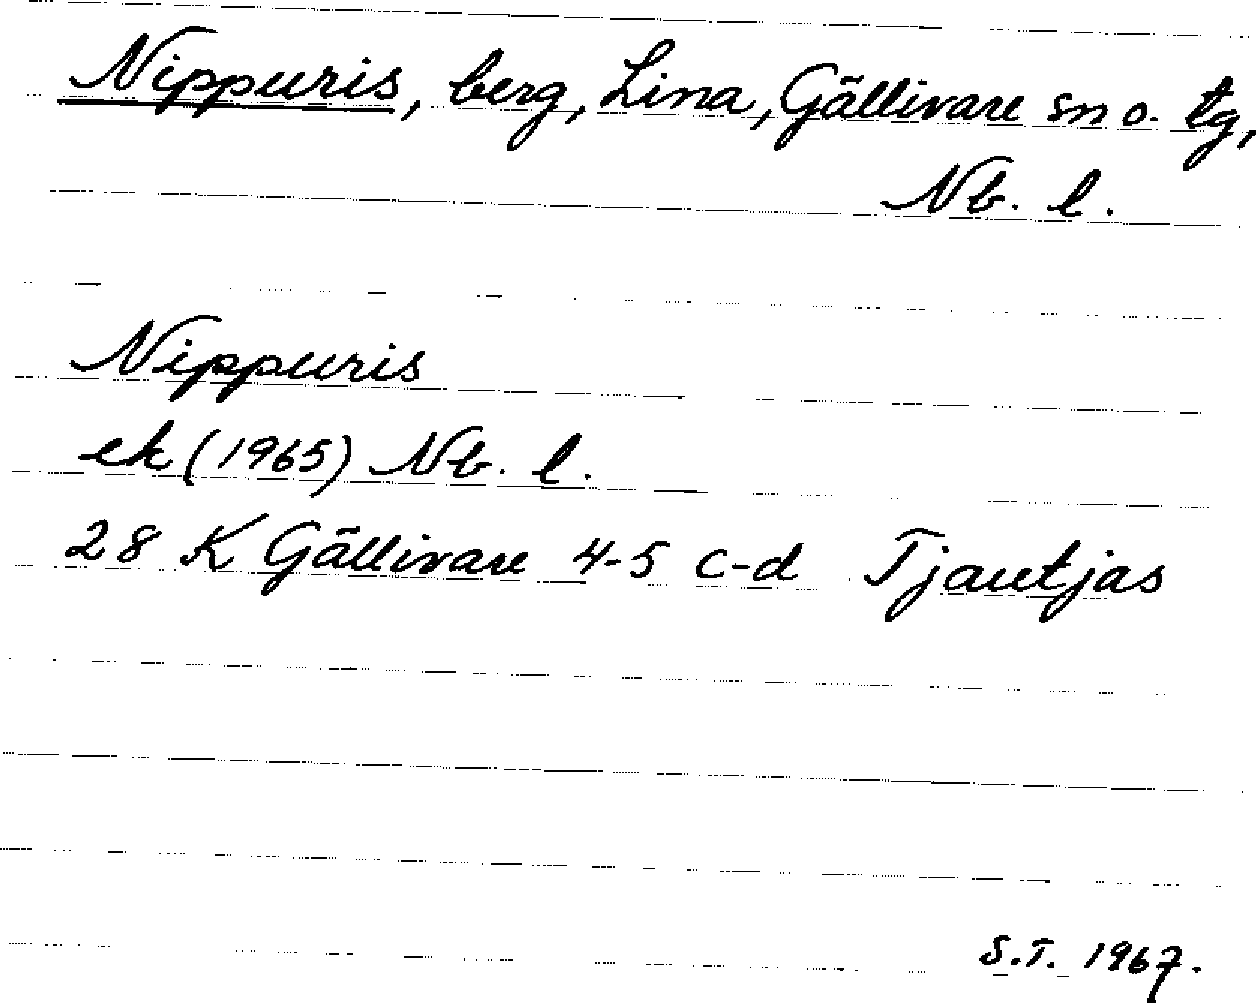 Nippuris, berg, Lina, Gällivare sn o. tg,
Nb. l.
Nippuris
ek (1965) Nb. l.
28 K Gällivare 4-5 c-d Tjautjas
S.T. 1967.